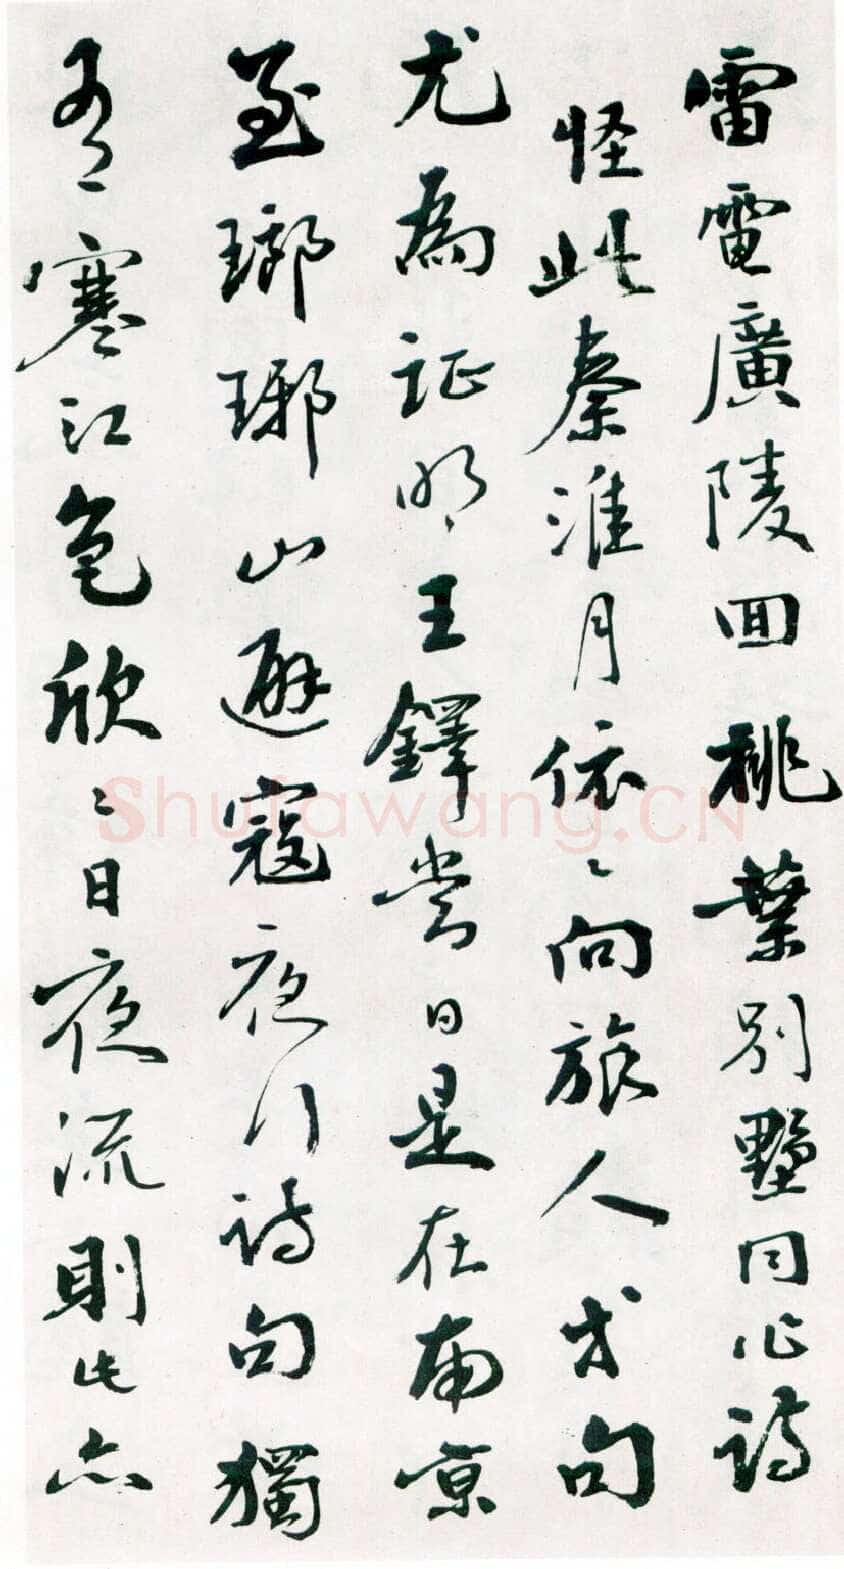 雷電廣陵回桃葉別墅同作詩
怪此秦淮月依〻向旅人才句
尤為証明王鐸當日是在南京
至瑯琊山避寇夜行詩句獨
有寒江色欣〻日夜流則此亦
Shufawang.CN